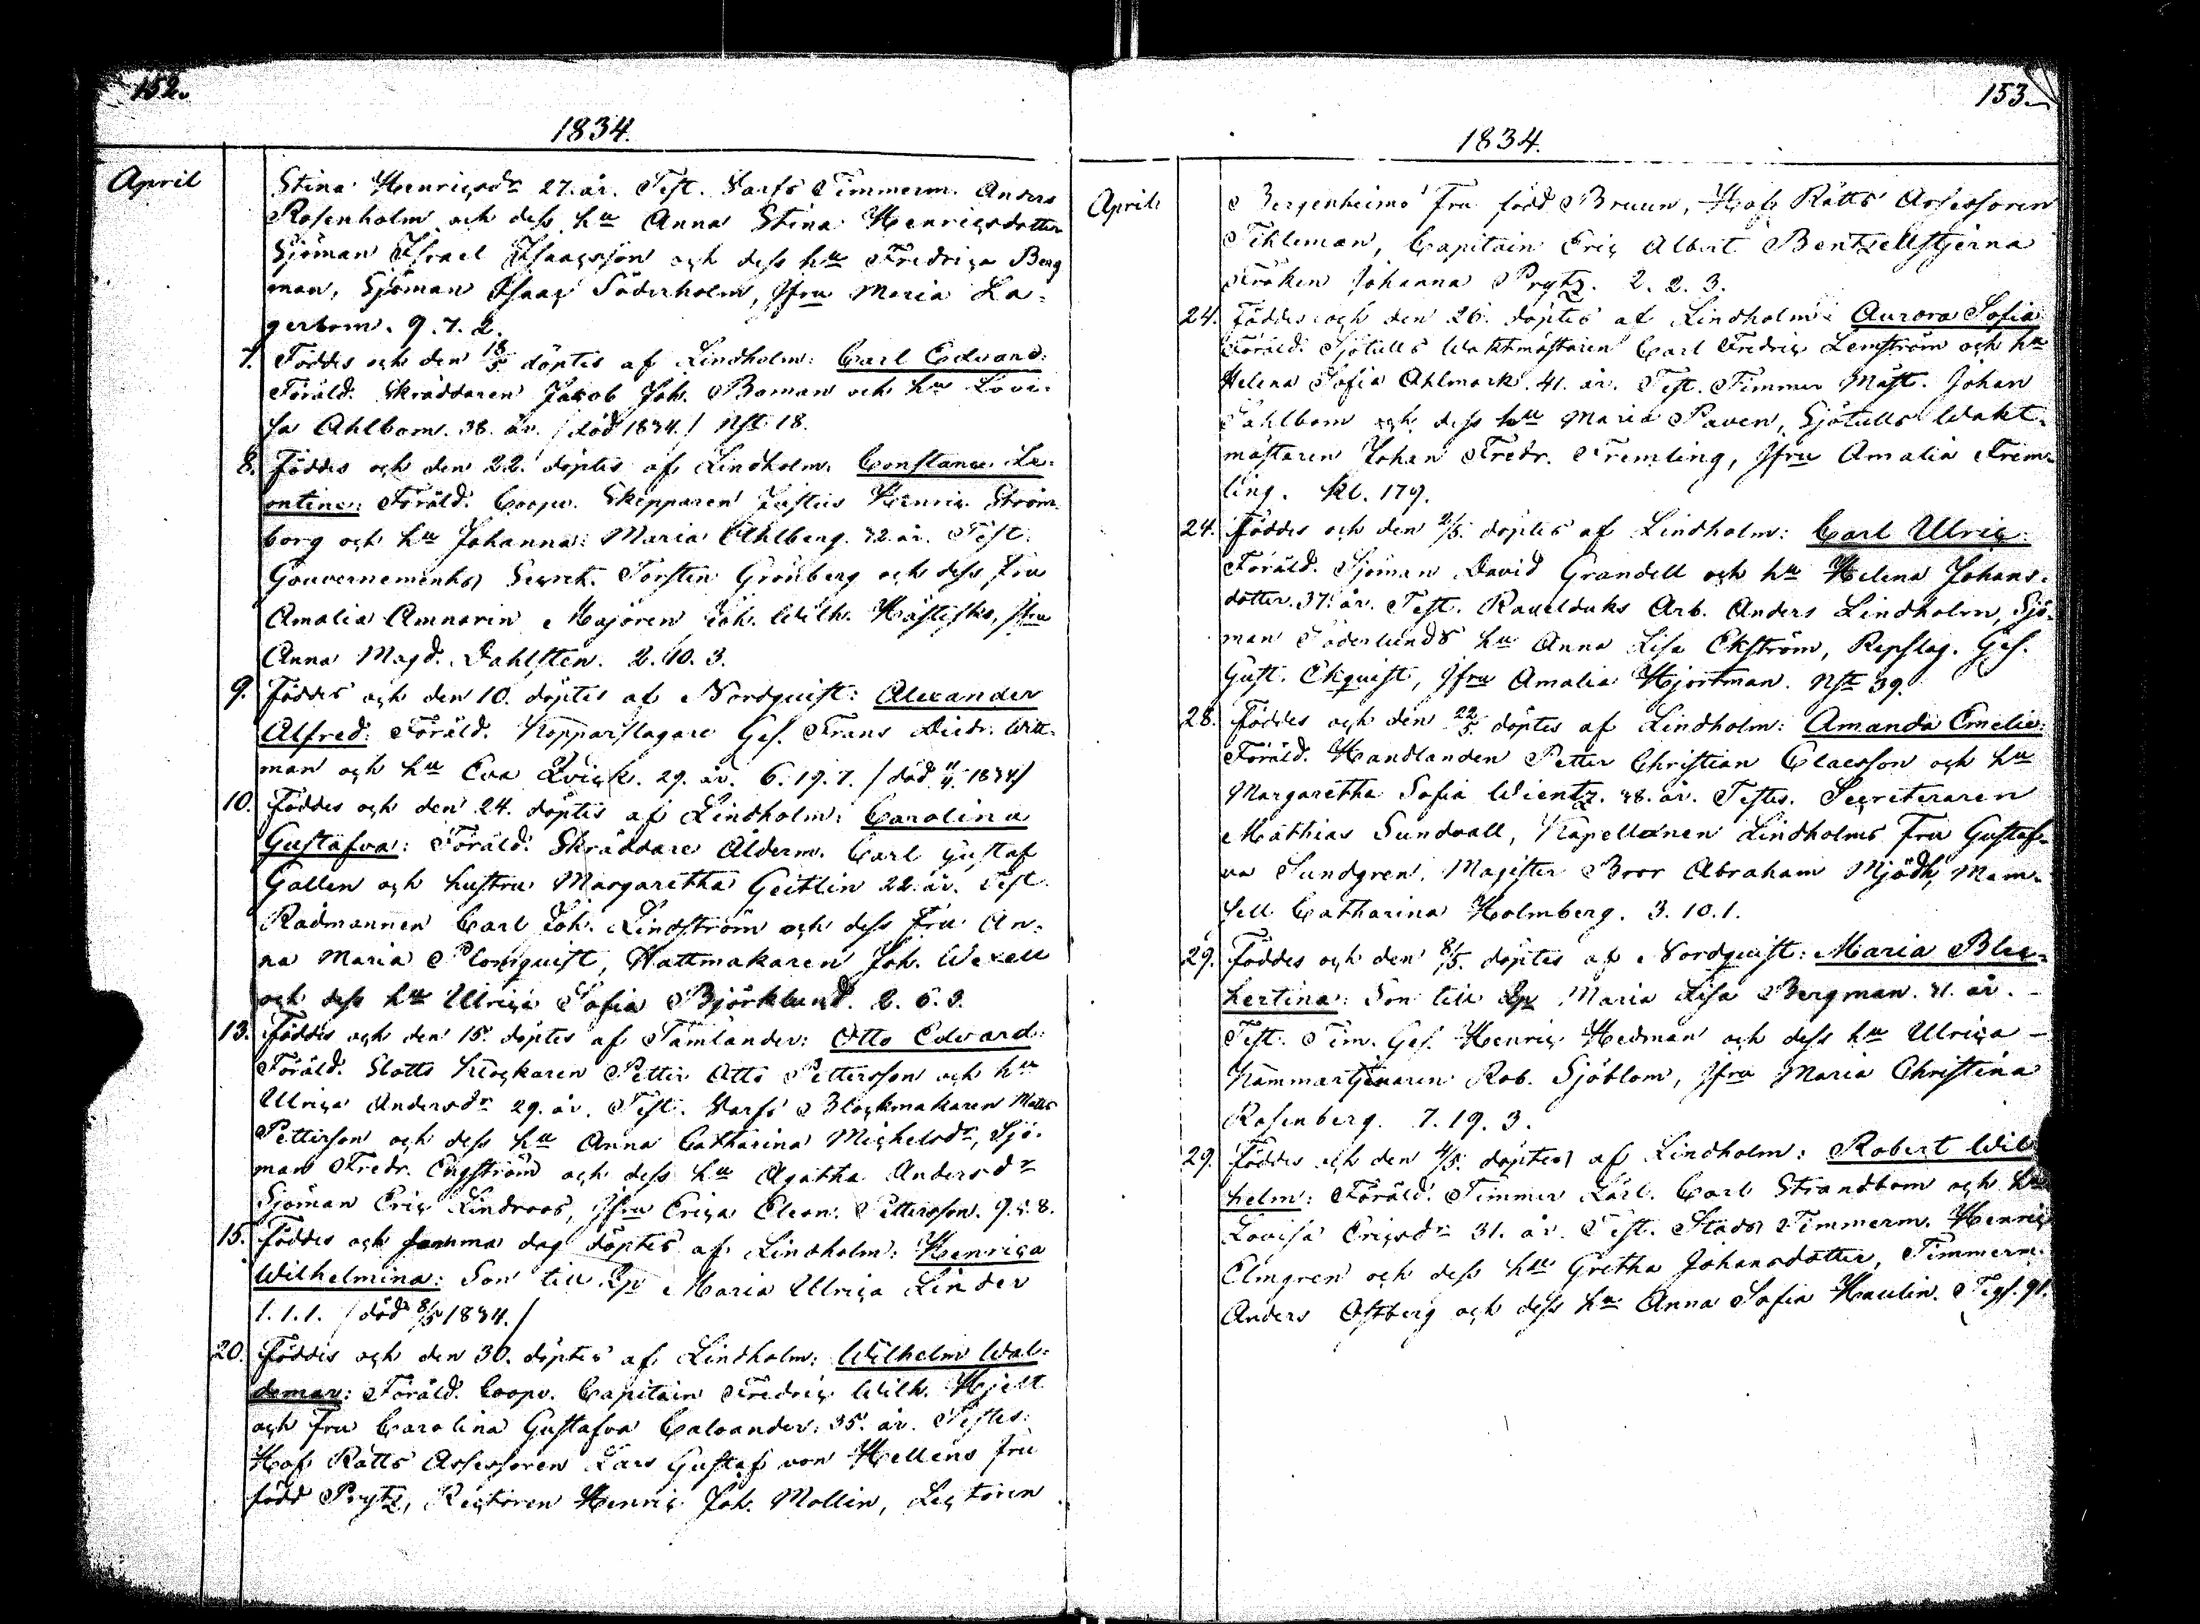 152.
1834.
April
Stina Henricsdr 27. år. Test. Varfs Timmerm. Anders
Rosenholm och dess hu Anna Stina Henricsdotter
Sjöman Israel Isaacsson och dess hu Fredrica Berg
man, Sjöman Isaac Söderholm, Jfru Maria La-
gerbom. 9. 7. 2.
7. Föddes och den 18/5 döptes af Lindholm: Carl Edvard:
Föräld. Skräddaren Jacob Joh. Boman och hu Lovi-
sa Ahlbom. 38. år. / död 1834. / Nst. 18.
8. Föddes och den 22. döptes af Lindholm: Constance Le-
ontine: Föräld. Coopv. Skepparen Justus Henric Ström-
borg och hu Johanna Maria Ahlberg. 32. år. Test.
Gouvernements Secret. Torsten Grönberg och dess Fru
Amalia Amnorin Majoren Joh. Wilh. Hästesko, Jfru
Anna Magd. Dahlsten. 2. 10. 3.
9. Föddes och den 10. döptes af Nordquist: Alexander
Alfred: Föräld. Kopparslagare Ges. Frans Diedr. Witt-
man och hu Eva Qvick. 29. år. 6. 19. 7. / död 11/4 1834 /
10. Föddes och den 24. döptes af Lindholm: Carolina
Gustafva: Föräld. Skräddare Ålderm. Carl Gustaf
Gallen och hustru Margaretha Geitlin 22. år. Test.
Rådmannen Carl Joh. Lindström och dess Fru An-
na Maria Blomquist, Hattmakaren Joh. Wexell
och dess hu Ulrica Sofia Björklund. 2. 6. 3.
13. Föddes och den 15. döptes af Tamlander: Otto Edvard:
Föräld. Slotts Klockaren Petter Otto Pettersson och hu
Ulrica Andersdr 29. år. Test. Varfs Blockmakaren Matts
Petterson och dess hu Anna Catharina Michelsdr, Sjö-
man Fredr. Engström och dess hu Agatha Andersdr
Sjöman Eric Lindroos, Jfru Erica Eleon. Pettersson. 9. 5. 8.
15. Föddes och samma dag döptes af Lindholm: Henrica
Wilhelmina: Son till Qp Maria Ulrica Linder
1. 1. 1. / död 8/5 1834. /
20. Föddes och den 30. döptes af Lindholm: Wilhelm Wal-
demar: Föräld. Coopv. Capitain Fredric Wilh. Hjelt
och Fru Carolina Gustafva Calvander: 35. år. Testes:
Hof Rätts Assessoren Lars Gustaf von Hellens Fru
född Prytz, Rectoren Henric Joh. Mollin, Lectoren
153.
1834.
April
Bergenheims Fru född Bruun, Hof Rätts Assessoren
Tihleman, Capitain Eric Albert Bentzelstjerna
Fröken Johanna Prytz. 2. 2. 3.
24. Föddes och den 26. döptes af Lindholm: Aurora Sofia
Föräld. Sjötulls Waktmästaren Carl Fredric Lemström och hu
Helena Sofia Ahlmark. 41. år. Test. Timmer Mäst. Johan
Sahlbom och dess hu Maria Paven, Sjötulls Wakt-
mästaren Johan Fredr. Fremling, Jfru Amalia Frem-
ling. Kl. 179.
24. Föddes och den 2/5. döptes af Lindholm: Carl Ulric:
Föräld. Sjöman David Grandell och hu Helena Johans-
dotter. 37. år. Test. Ravelduks Arb. Anders Lindholm, Sjö-
man Söderlunds hu Anna Lisa Ekström, Repslag. Ges.
Gust. Ekquist, Jfru Amalia Hjortman. Nst 39.
28. Föddes och den 22/5. döptes af Lindholm: Amanda Emelie:
Föräld. Handlanden Petter Christian Claesson och hu
Margaretha Sofia Wientz. 38. år. Testes. Secreteraren
Mathias Sundvall, Kapellanen Lindholms Fru Gustaf-
va Sundgren, Magister Bror Abraham Mjödh, Mam-
sell Catharina Holmberg. 3. 10. 1.
29. Föddes och den 8/5. döptes af Nordquist: Maria Blec-
hertina: Son till Qp Maria Lisa Bergman. 31. år. -
Test. Tim. Ges. Henric Hedman och dess hu Ulrica -
Kammartjenaren Rob. Sjöblom, Jfru Maria Christina
Rosenberg. 7. 19. 3.
29. Föddes och den 4/5. döptes af Lindholm: Robert Wil
helm: Föräld. Timmer Karl. Carl Strandbom och hu
Lovisa Ericsdr 31. år. Test. Stads Timmerm. Henric
Elmgren och dess hu Gretha Johansdotter, Timmerm.
Anders Ostberg och dess hu Anna Sofia Haulin. Tegs. 91.